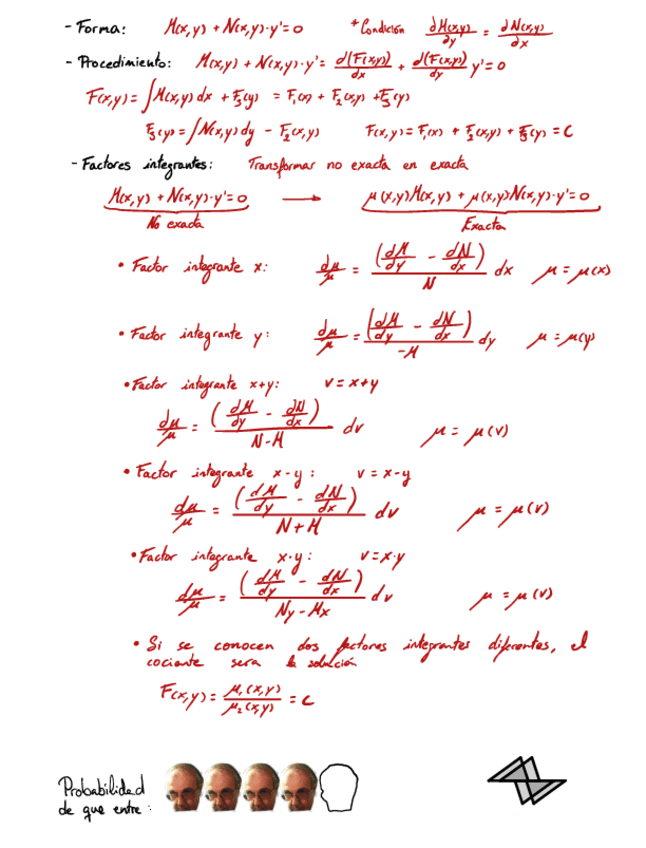 - Forma: M(x,y) + N(x,y)·y' = 0 * Condición dM(x,y)/dy = dN(x,y)/dx
- Procedimiento: M(x,y) + N(x,y)·y' = d(F(x,y))/dx + d(F(x,y))/dy y' = 0
F(x,y) = ∫M(x,y)dx + F₃(y) = F₁(x) + F₂(x,y) + F₃(y)
F₃(y) = ∫N(x,y)dy - F₂(x,y) F(x,y) = F₁(x) + F₂(x,y) + F₃(y) = C
- Factores integrantes: Transformar no exacta en exacta
M(x,y) + N(x,y)·y' = 0 → μ(x,y)M(x,y) + μ(x,y)N(x,y)·y' = 0
No exacta Exacta
• Factor integrante x: dμ/μ = (dM/dy - dN/dx)/N dx μ = μ(x)
• Factor integrante y: dμ/μ = (dM/dy - dN/dx)/-M dy μ = μ(y)
• Factor integrante x+y: v = x+y
dμ/μ = (dM/dy - dN/dx)/N-M dv μ = μ(v)
• Factor integrante x-y: v = x-y
dμ/μ = (dM/dy - dN/dx)/N+M dv μ = μ(v)
• Factor integrante x·y: v = x·y
dμ/μ = (dM/dy - dN/dx)/Ny-Mx dv μ = μ(v)
• Si se conocen dos factores integrantes diferentes, el
cociente sera la solución
F(x,y) = μ₁(x,y)/μ₂(x,y) = C
Probabilidad
de que entre: